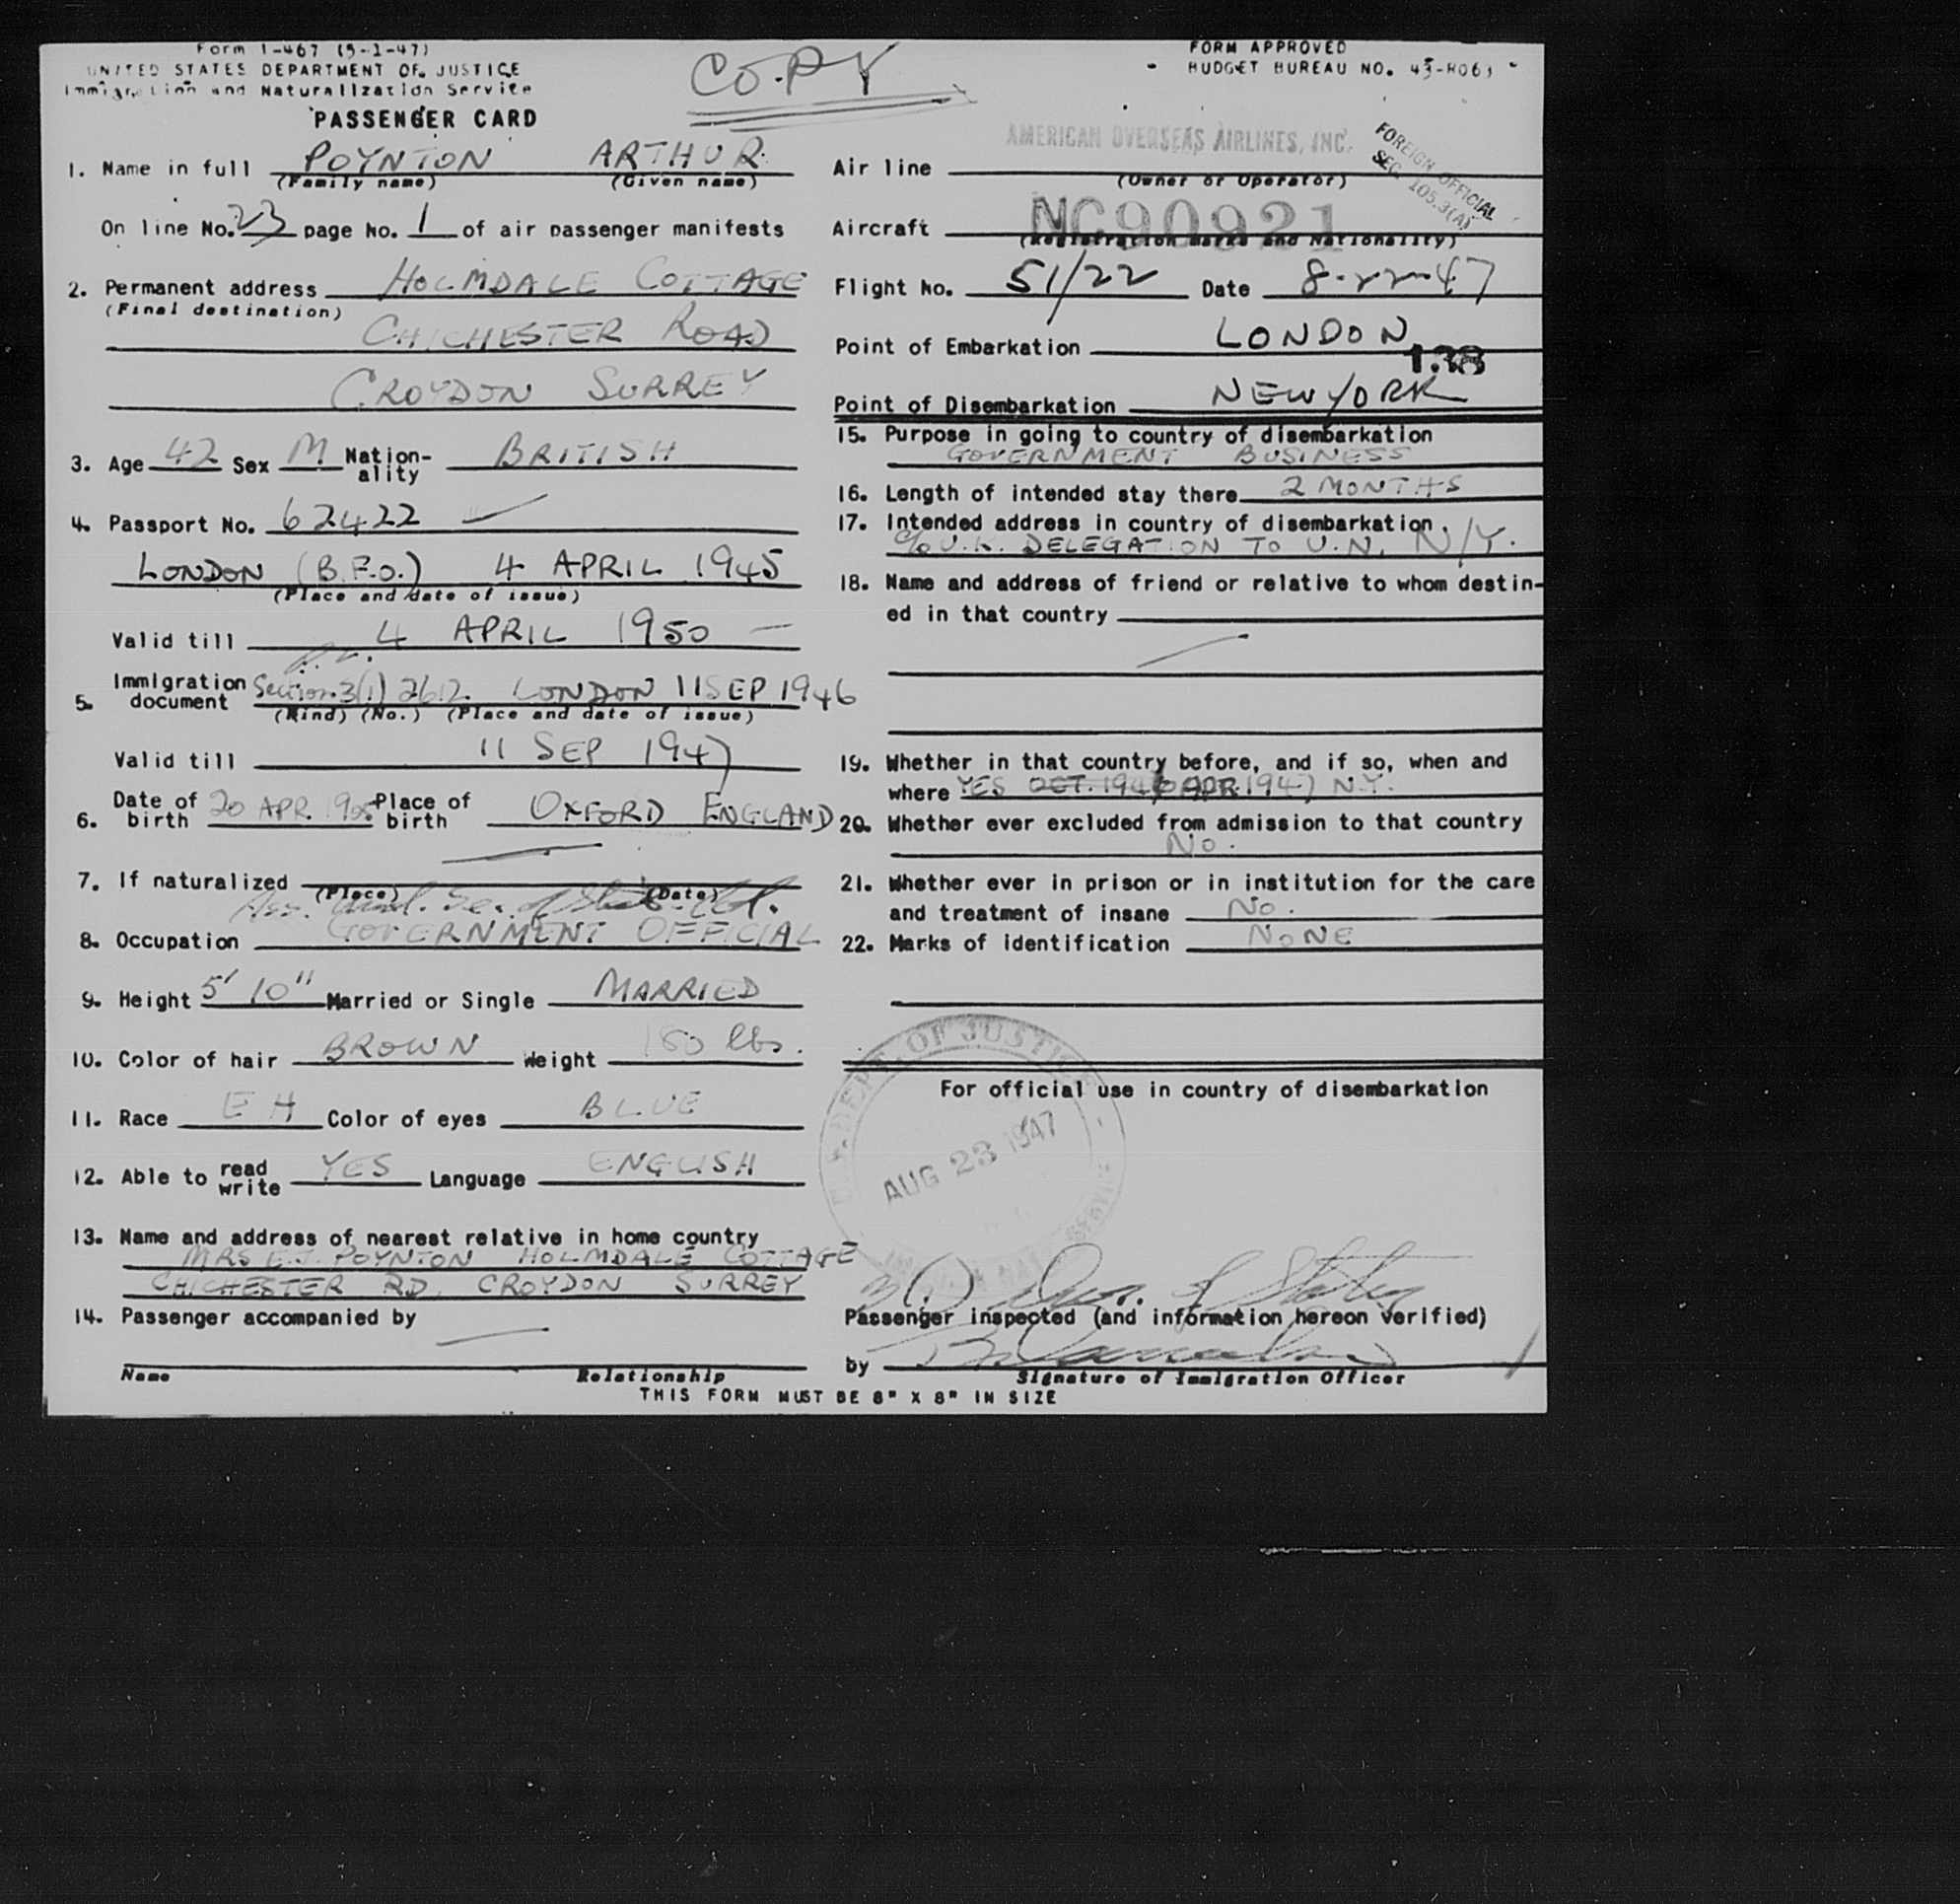 Form I-467 (5-1-47)
UNITED STATES DEPARTMENT OF JUSTICE
Immigration and Naturalization Service
PASSENGER CARD
COPY
FORM APPROVED
BUDGET BUREAU NO. 43-R063
1. Name in full POYNTON ARTHUR
(Family name) (Given name)
On line No. 23 page No. 1 of air passenger manifests
2. Permanent address HOLMDALE COTTAGE
(Final destination)
CHICHESTER ROAD
CROYDON SURREY
3. Age 42 Sex M Nation-ality BRITISH
4. Passport No. 62422
LONDON (B.F.O.) 4 APRIL 1945
(Place and date of issue)
Valid till 4 APRIL 1950
5. Immigration document Section 3(1) 2612 LONDON 11 SEP 1946
(Kind) (No.) (Place and date of issue)
Valid till 11 SEP 1947
6. Date of birth 20 APR 1905 Place of birth OXFORD ENGLAND
7. If naturalized
(Place) (Date)
8. Occupation GOVERNMENT OFFICIAL
9. Height 5' 10" Married or Single MARRIED
10. Color of hair BROWN Weight 180 lbs.
11. Race E H Color of eyes BLUE
12. Able to read write YES Language ENGLISH
13. Name and address of nearest relative in home country
MRS E.J. POYNTON HOLMDALE COTTAGE
CHICHESTER RD. CROYDON SURREY
14. Passenger accompanied by
Name Relationship
AMERICAN OVERSEAS AIRLINES, INC.
FOREIGN OFFICIAL
SEC. 105.3(A)
Air line
(Owner or Operator)
Aircraft NC90921
(Registration marks and Nationality)
Flight No. 51/22 Date 8-22-47
Point of Embarkation LONDON
138
Point of Disembarkation NEW YORK
15. Purpose in going to country of disembarkation
GOVERNMENT BUSINESS
16. Length of intended stay there 2 MONTHS
17. Intended address in country of disembarkation
c/o U.K. DELEGATION TO U.N. N/Y.
18. Name and address of friend or relative to whom destin-
ed in that country
19. Whether in that country before, and if so, when and
where YES OCT. 1946 APR. 1947 N.Y.
20. Whether ever excluded from admission to that country
No.
21. Whether ever in prison or in institution for the care
and treatment of insane No.
22. Marks of identification NONE
For official use in country of disembarkation
DEPT. OF JUSTICE
AUG 23 1947
Passenger inspected (and information hereon verified)
by
Signature of Immigration Officer
THIS FORM MUST BE 8" X 8" IN SIZE